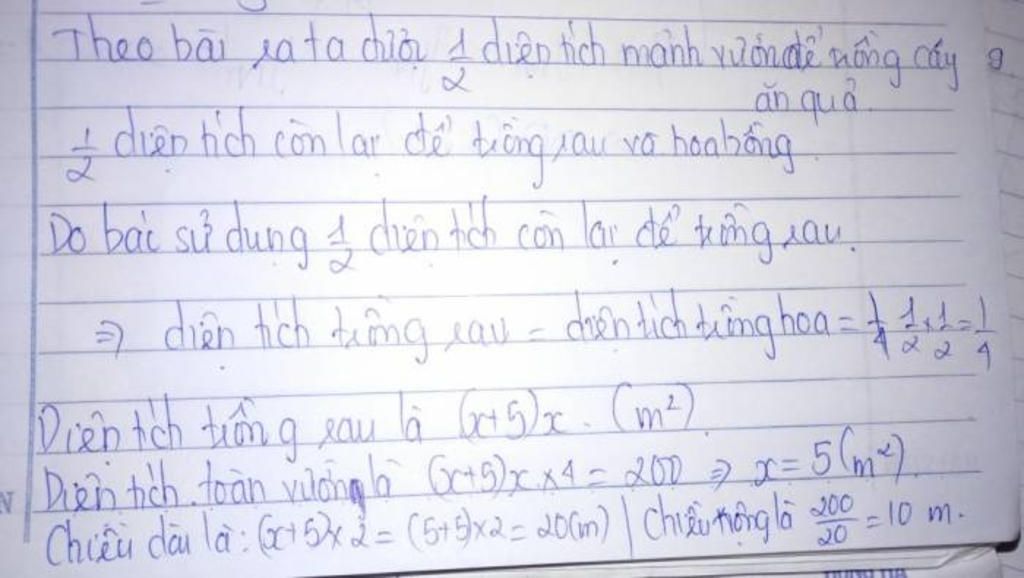 Theo bài ra ta chia 1/2 diện tích mảnh vườn để trồng cây
ăn quả.
1/2 diện tích còn lại để trồng rau và hoa hồng.
Do bác sử dụng 1/2 diện tích còn lại để trồng rau.
⇒ diện tích trồng rau = diện tích trồng hoa = 1/2 x 1/2 = 1/4
Diện tích trồng rau là (x+5)x. (m²).
Diện tích toàn vườn là (x+5)x x 4 = 200 ⇒ x = 5(m²)
Chiều dài là: (x+5)x 2 = (5+5)x2 = 20(m) | Chiều rộng là 200/20 = 10 m.